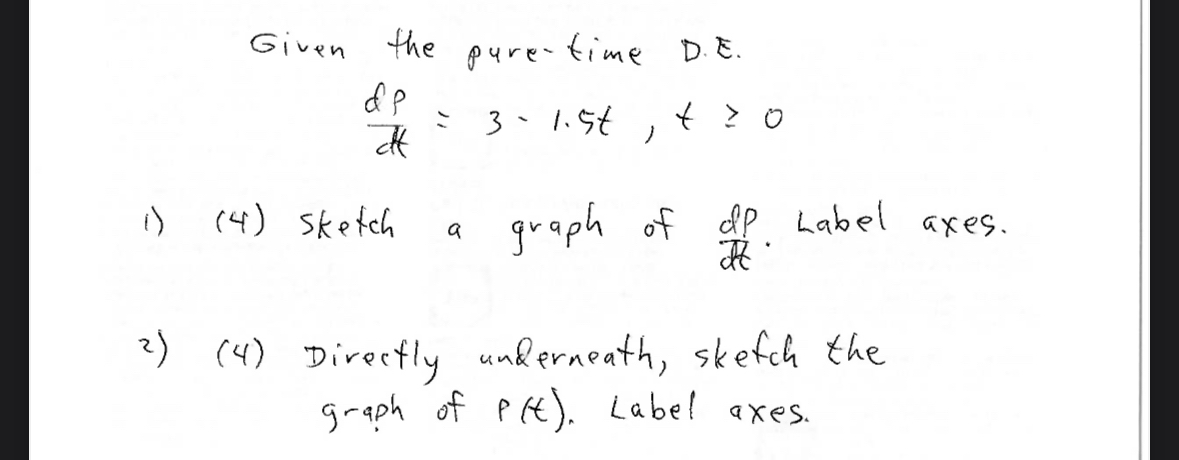 Given the pure-time D.E.
dP/dt = 3 - 1.5t , t ≥ 0
1) (4) Sketch a graph of dP/dt. Label axes.
2) (4) Directly underneath, sketch the
graph of P(t). Label axes.